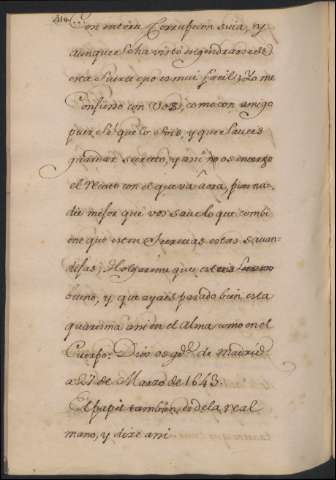 con interin Corrupcion suia, y
aunque se ha visto engendrarse de
esta suerte, no es mui facil; Yo me
Confieso con Vos, como con amigo
pues sé que lo sois, y que saveis
guardar secreto, y ansi no os encargo
el recato con el que va aora, pues na-
die mejor que vos save lo que combi
ene que esten secretas estas
Holgareme que esteis
bueno, y que ayais pasado bien esta
quaresma ansi en el Alma como en el
Cuerpo. Dios os gde. de Madrid
a 27 de Marzo de 1643.
El papel tambien, es de la real
mano, y dize ansi